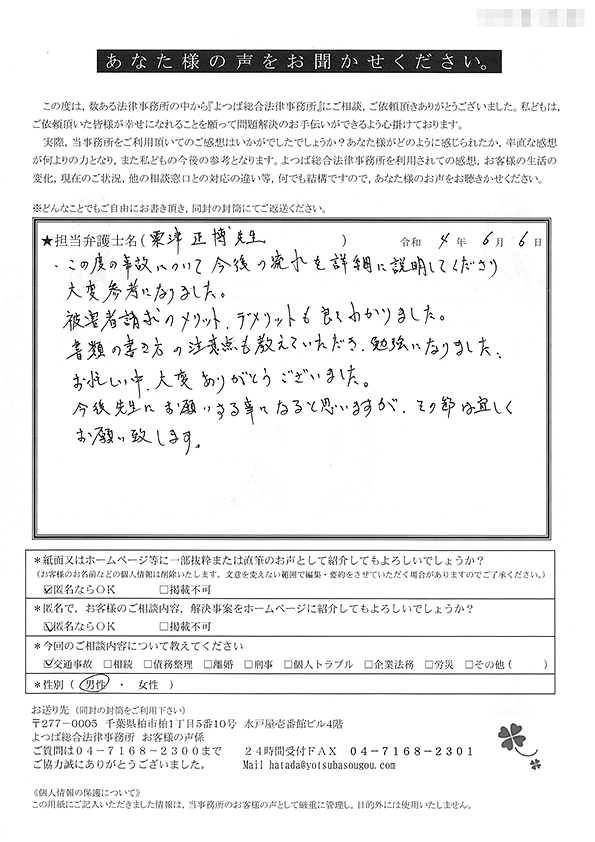 あなた様の声をお聞かせください。
この度は，数ある法律事務所の中から『よつば総合法律事務所』にご相談，ご依頼頂きありがとうございました。私どもは，
ご依頼頂いた皆様が幸せになれることを願って問題解決のお手伝いができるよう心掛けております。
実際，当事務所をご利用頂いてのご感想はいかがでしたでしょうか？あなた様がどのように感じられたか，率直な感想
が何よりの力となり，また私どもの今後の参考となります。よつば総合法律事務所を利用されての感想，お客様の生活の
変化，現在のご状況，他の相談窓口との対応の違い等，何でも結構ですので，あなた様のお声をお聴きかせください。
※どんなことでもご自由にお書き頂き，同封の封筒にてご返送ください。
★担当弁護士名（粟津 正博 先生　　　）　令和 4 年 6 月 6 日
・この度の事故について今後の流れを詳細に説明してくださり
大変参考になりました。
被害者請求のメリット、デメリットも良くわかりました。
書類の書き方の注意点も教えていただき、勉強になりました。
お忙しい中、大変ありがとうございました。
今後先生にお願いする事になると思いますが、その節は宜しく
お願い致します。
＊紙面又はホームページ等に一部抜粋または直筆のお声として紹介してもよろしいでしょうか？
（お客様のお名前などの個人情報は削除いたします。文意を変えない範囲で編集・要約をさせていただく場合がありますのでご了承ください。）
☑匿名ならＯＫ　　□掲載不可
＊匿名で，お客様のご相談内容，解決事案をホームページに紹介してもよろしいでしょうか？
☑匿名ならＯＫ　　□掲載不可
＊今回のご相談内容について教えてください
☑交通事故　□相続　□債務整理　□離婚　□刑事　□個人トラブル　□企業法務　□労災　□その他（　　）
＊性別（ 男性 ・ 女性 ）
お送り先（同封の封筒をご利用下さい）
〒277－0005 千葉県柏市柏1丁目5番10号 水戸屋壱番館ビル4階
よつば総合法律事務所 お客様の声係
ご質問は０４－７１６８－２３００まで　　２４時間受付ＦＡＸ ０４－７１６８－２３０１
ご協力誠にありがとうございました。　　Mail hatada@yotsubasougou.com
《個人情報の保護について》
この用紙にご記入いただきました情報は，当事務所のお客様の声として厳重に管理し，目的外には使用いたしません。